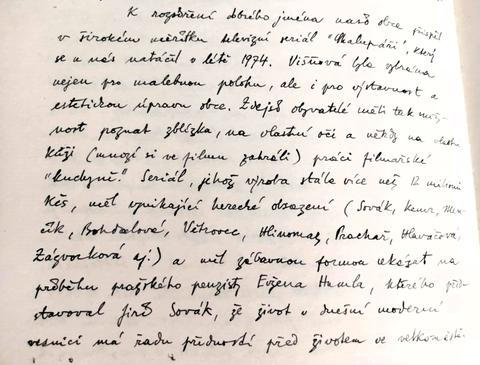 K rozšíření dobrého jména naší obce přispěl
v širokém měřítku televizní seriál "Chalupáři", který
se u nás natáčel v létě 1974. Višňová byla vybrána
nejen pro malebnou polohu, ale i pro výstavnost a
estetickou úpravu obce. Zdejší obyvatelé měli tak mož-
nost poznat zblízka, na vlastní oči a někdy na vlastní
kůži (mnozí si ve filmu zahráli) práci filmařské
"kuchyně". Seriál, jehož výroba stála více než 12 milionů
Kčs, měl vynikající herecké obsazení (Sovák, Kemr, Men-
šík, Bohdalová, Větrovec, Hlinomaz, Prachař, Hlaváčová,
Zázvorková aj.) a měl zábavnou formou ukázat na
průběhu pražského penzisty Evžena Humla, kterého před-
stavoval Jiří Sovák, že život v dnešní moderní
vesnici má řadu předností před životem ve velkoměstě.